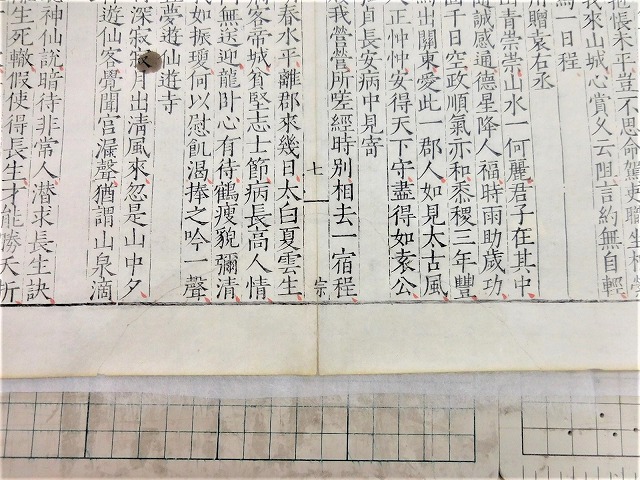 抱悵未平豈不思命駕吏職坐相
我來山城心賞久云阻言約無自輕
爲一日程
贈袁右丞
山青崇崇山水一何麗君子在其中
誠感通德星降人福時雨助歲功
干日空政順氣亦和黍稷三年豐
出關東愛此一郡人如見太古風
大正忡忡安得天下守盡得如袁公
自長安病中見寄
我營營所嗟經時別相去一宿程
七
宗
春水平離郡來幾日太白夏雲生
客帝城貧堅志士節病長高人情
無送迎龍卧心有待鶴瘦貌彌清
如振瓊何以慰飢渴捧之吟一聲
夢遊仙遊寺
深寂寂月出清風來忽是山中夕
遊仙客覺聞宮漏聲猶謂山泉滴
神仙說暗待非常人潛求長生訣
生死轍假使得長生才能勝夭折